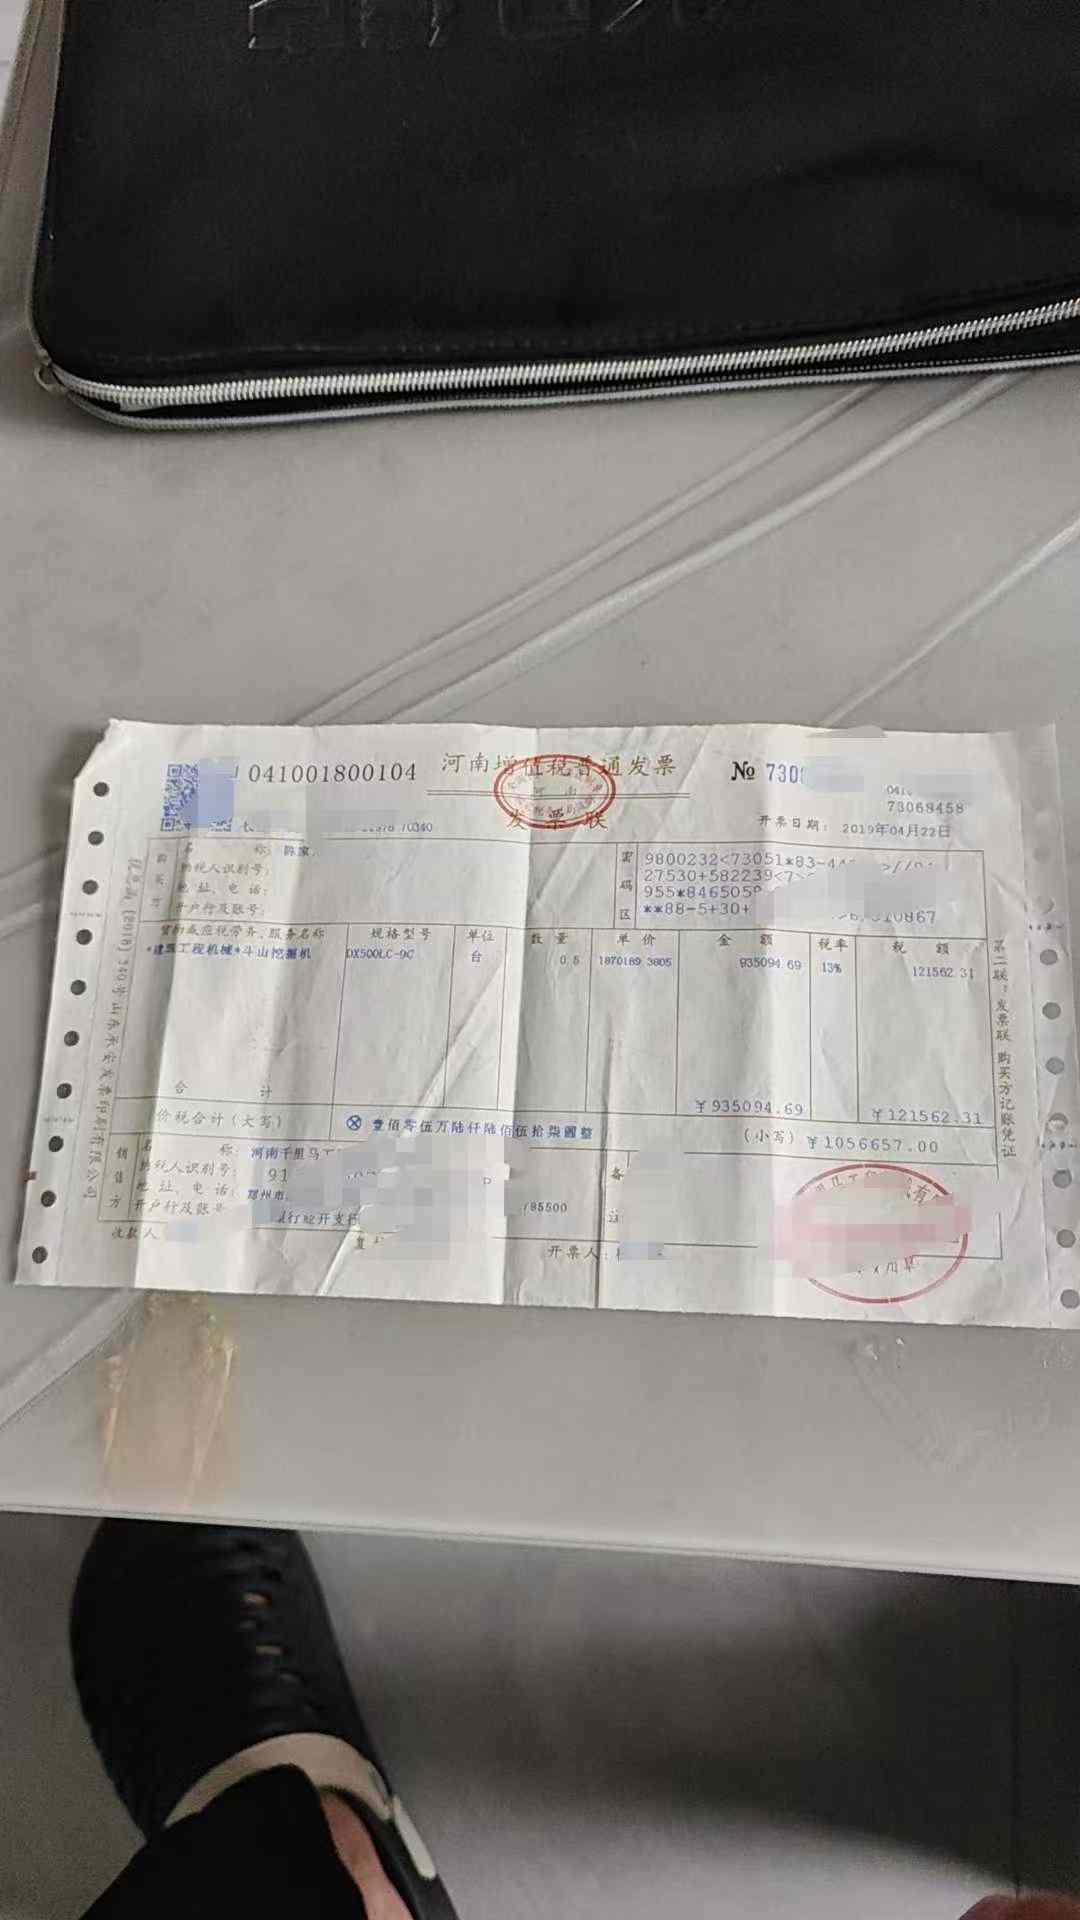 041001800104
河南增值税普通发票
№ 730
发票联
73068458
开票日期: 2019年04月22日
70340
名 称:
纳税人识别号:
地址、电话:
开户行及账号:
密码区
9800232<73051*83-4
27530+582239<7>
955*846505
**88-5+30+
310867
货物或应税劳务、服务名称 规格型号 单位 数量 单价 金额 税率 税额
*建筑工程机械*斗山挖掘机 DX500LC-9C 台 0.5 1870189.3805 935094.69 13% 121562.31
合 计 ¥935094.69 ¥121562.31
价税合计(大写) ⊗壹佰零伍万陆仟陆佰伍拾柒圆整 (小写) ¥1056657.00
销售方
名 称: 河南千里马
纳税人识别号: 91
地址、电话: 郑州市
开户行及账号 785500
收款人
开票人:
第二联:发票联 购买方记账凭证